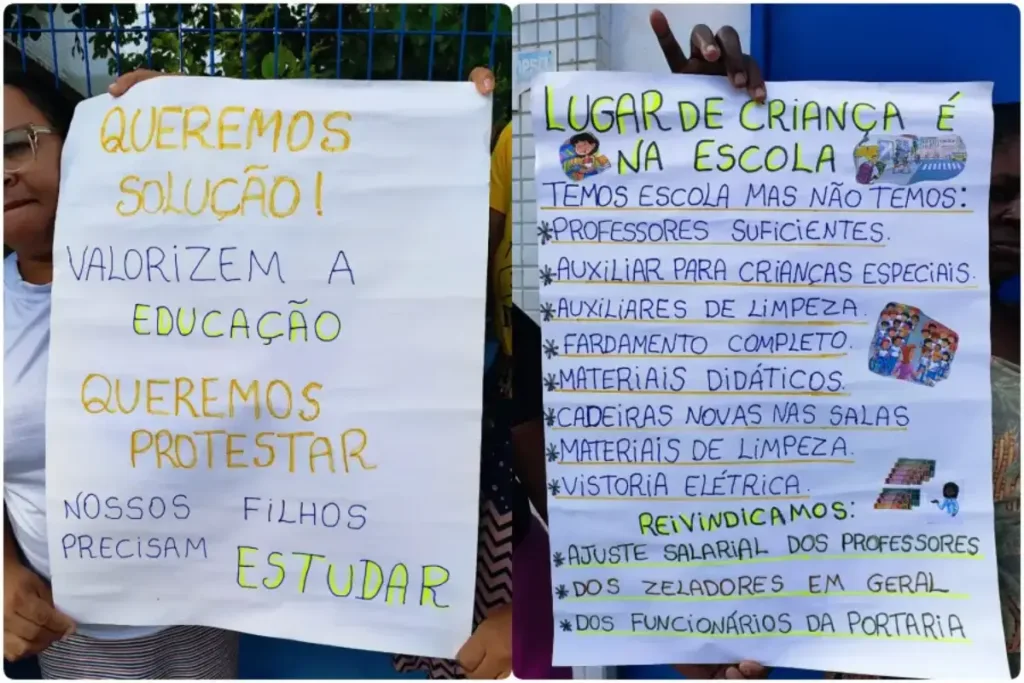 QUEREMOS
SOLUÇÃO!
VALORIZEM A
EDUCAÇÃO
QUEREMOS
PROTESTAR
NOSSOS FILHOS
PRECISAM ESTUDAR
LUGAR DE CRIANÇA É
NA ESCOLA
TEMOS ESCOLA MAS NÃO TEMOS:
*PROFESSORES SUFICIENTES.
*AUXILIAR PARA CRIANÇAS ESPECIAIS.
*AUXILIARES DE LIMPEZA.
*FARDAMENTO COMPLETO.
*MATERIAIS DIDÁTICOS.
*CADEIRAS NOVAS NAS SALAS
*MATERIAIS DE LIMPEZA.
*VISTORIA ELÉTRICA.
REIVINDICAMOS:
*AJUSTE SALARIAL DOS PROFESSORES
*DOS ZELADORES EM GERAL
*DOS FUNCIONÁRIOS DA PORTARIA